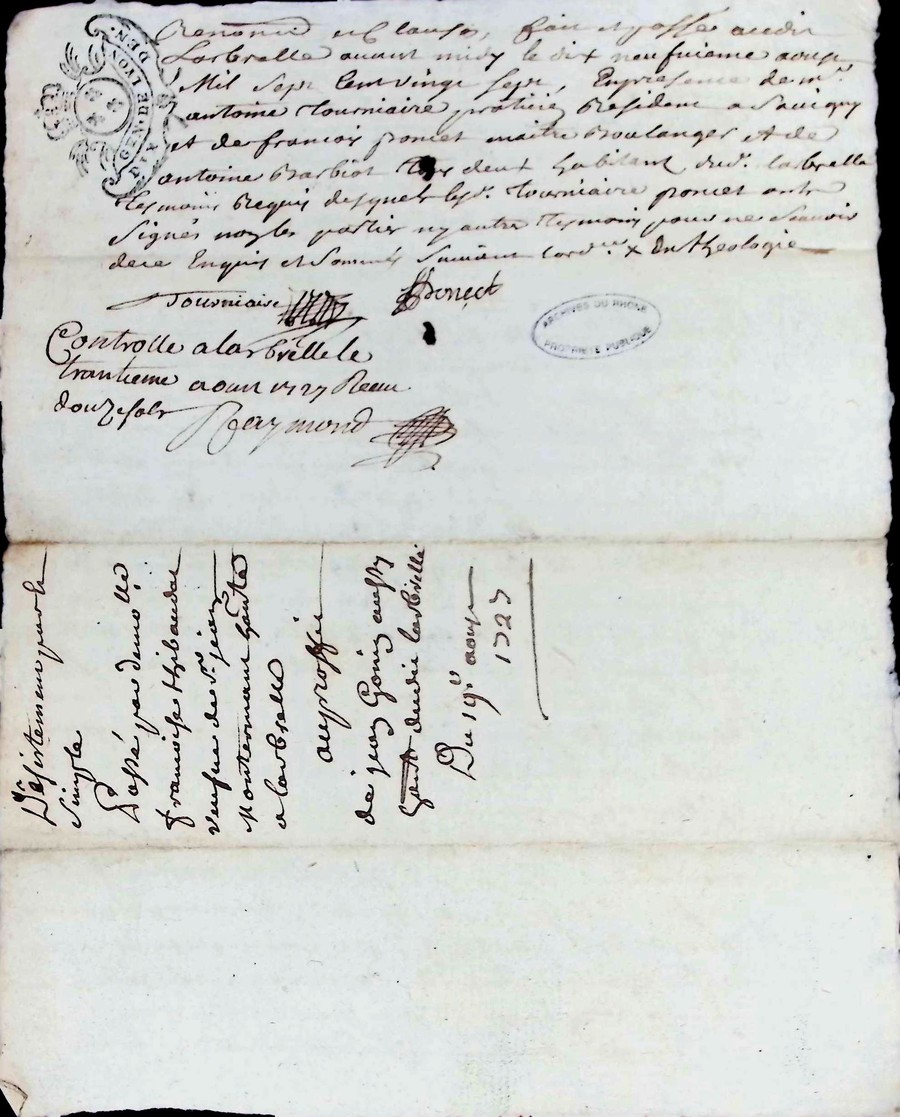 GEN. DE LYON
DIX DEN.
Renoncé et Clauses, fait et passé audit
Larbrelle avant midy le dix neufvieme aoust
Mil Sept Cent vingt sept, En presence de mr.
antoine Tourniaire praticié Resident a Savigny
et de francois poncet maitre Boulanger et de
antoine Barbiot tous deux habitant dud. larbrelle
tesmoins Requis desquels lesd. Tourniaire poncet ont
Signés non les parties ny autre tesmoin pour ne Scavoir
de ce Enquis et Sommés Suivant lord.ce
Tourniaire
Poncet
ARCHIVES DU RHÔNE
PROPRIÉTÉ PUBLIQUE
Controlle a larbrelle le
trantieme aoust 1727 Receu
douze sols
Raymond
Desistement pur et
Simple
Passé par demolle
francoise thibaudet
veufve de Sr jean
Montermant
a larbrelle
au proffit
de jean Gonin aussy
dudit larbrelle
Du 19e aoust
1727